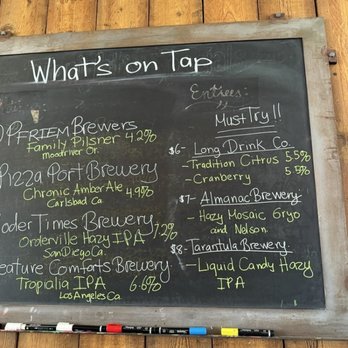 What's on Tap
PFRIEM Brewers
Family Pilsner 4.2%
Moodriver Or.
Pizza Port Brewery
Chronic Amber Ale 4.9%
Carlsbad Ca
oder Times Brewery 7.2%
Orderville Hazy IPA
San Diego Ca.
eature Comforts Brewery
Tropialia IPA 6.6%
Los Angeles Ca.
Entrees:
Must Try!!
$6- Long Drink Co.
-Tradition Citrus 5.5%
-Cranberry 5.5%
$7- Almanac Brewery
- Hazy Mosaic Gryo
and Nelson
$8- Tarantula Brewery
- Liquid Candy Hazy
IPA